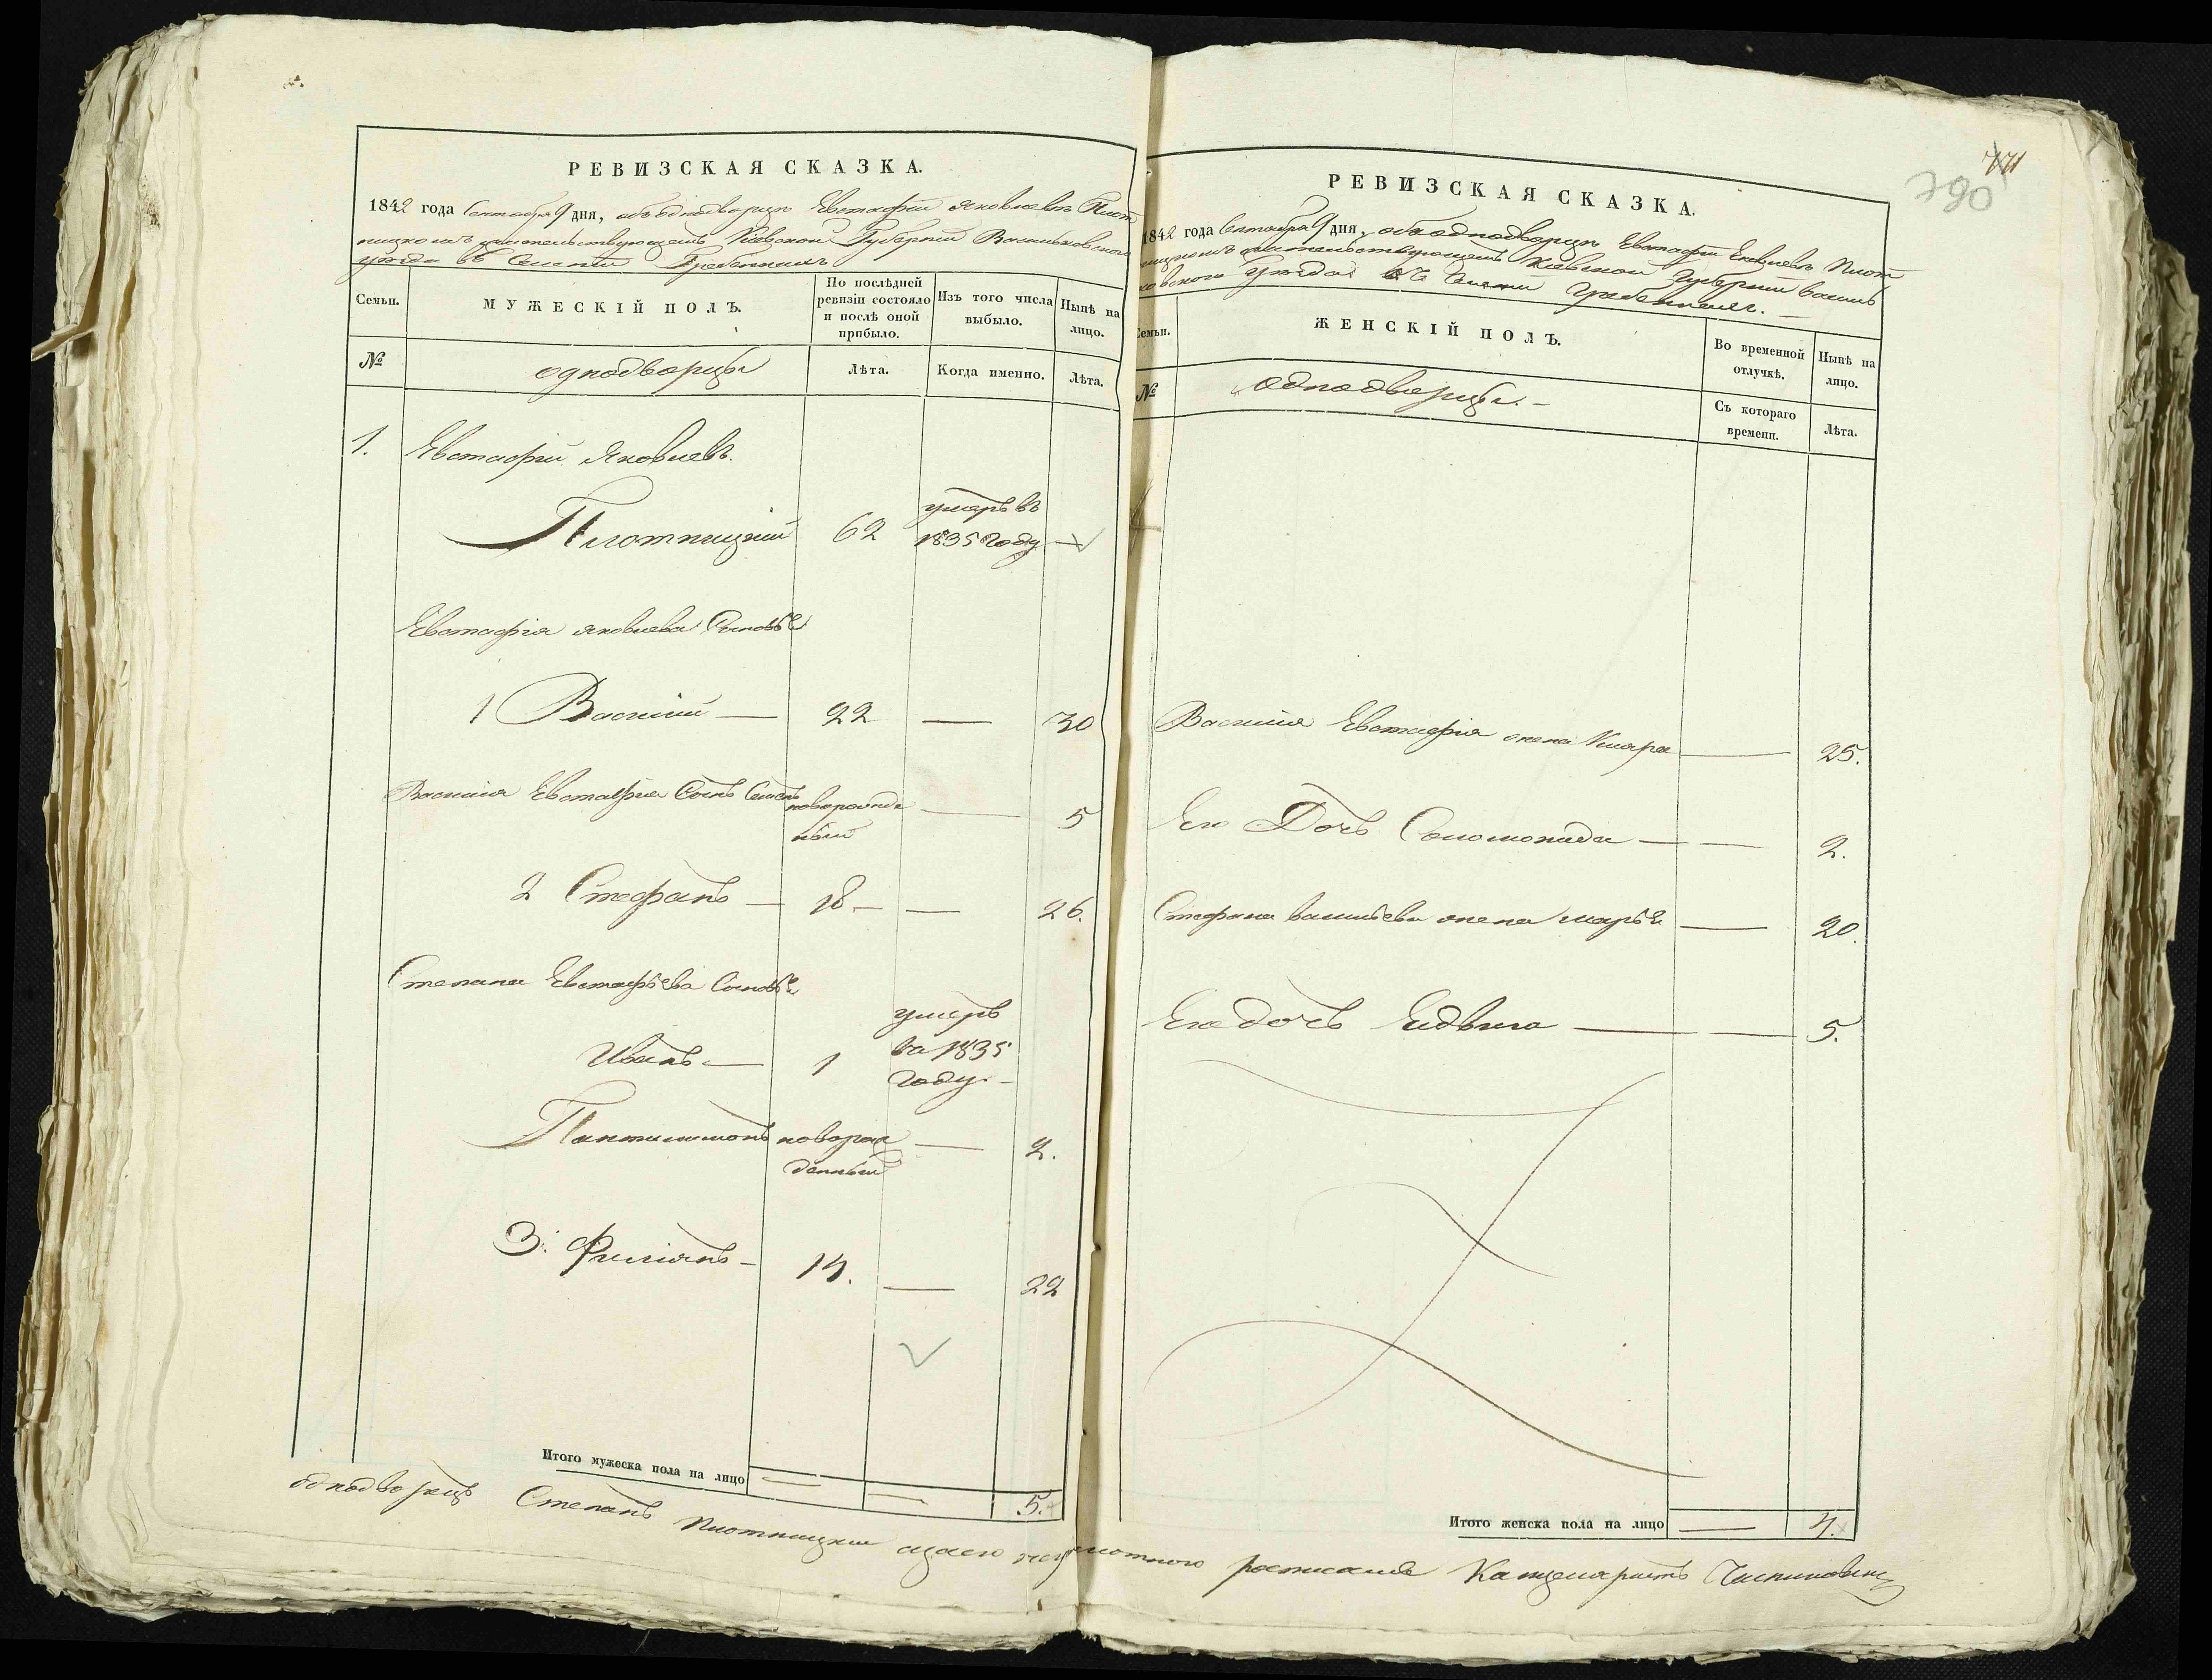 РЕВИЗСКАЯ СКАЗКА.
1842 года Сентября 9 дня, объ однодворце Евстафии Яковлеве Плот
ницкомъ жительствующемъ Киевской Губернии Васильковского
уезда въ Селении Гребенкахъ
Семьи.
МУЖЕСКІЙ ПОЛЪ.
По послѣдней ревизіи состояло и послѣ оной прибыло.
Изъ того числа выбыло.
Нынѣ на лицо.
№
однодворцы
Лѣта.
Когда именно.
Лѣта.
1. Евстафій Яковлевъ
Плотницкий 62 умеръ въ 1835 году —
Евстафія Яковлева Сыновье
1 Василий — 22 — 30
Василия Евстафия Сынъ новорожде — 5
ный
2 Стефанъ — 18 — — 26.
Степана Евстафьева Сыновье
Иванъ — 1 умеръ въ 1835 году. —
Пантилимонъ новорож — 2.
денный
3. 14. — 22
Итого мужеска пола на лицо — — 5.
РЕВИЗСКАЯ СКАЗКА.
1842 года Сентября 9 дня, объ однодворце Евстафи Яковлеве Плот
ницкомъ жительствующемъ Киевской Губернии Василь
ковского Уезда въ Гребенкахъ. —
Семьи.
ЖЕНСКІЙ ПОЛЪ.
Во временной отлучкѣ.
Нынѣ на лицо.
№
Однодворцы. —
Съ котораго времени.
Лѣта.
Василия Евстафия жена — 25.
Его Дочь Соломонида — — 2.
Стефана жена Марья — 20.
Его дочь — — 5.
Итого женска пола на лицо — 4.
однодворецъ Степанъ Плотницкий а за его неграмотного росписался Канцеляристъ
790
771